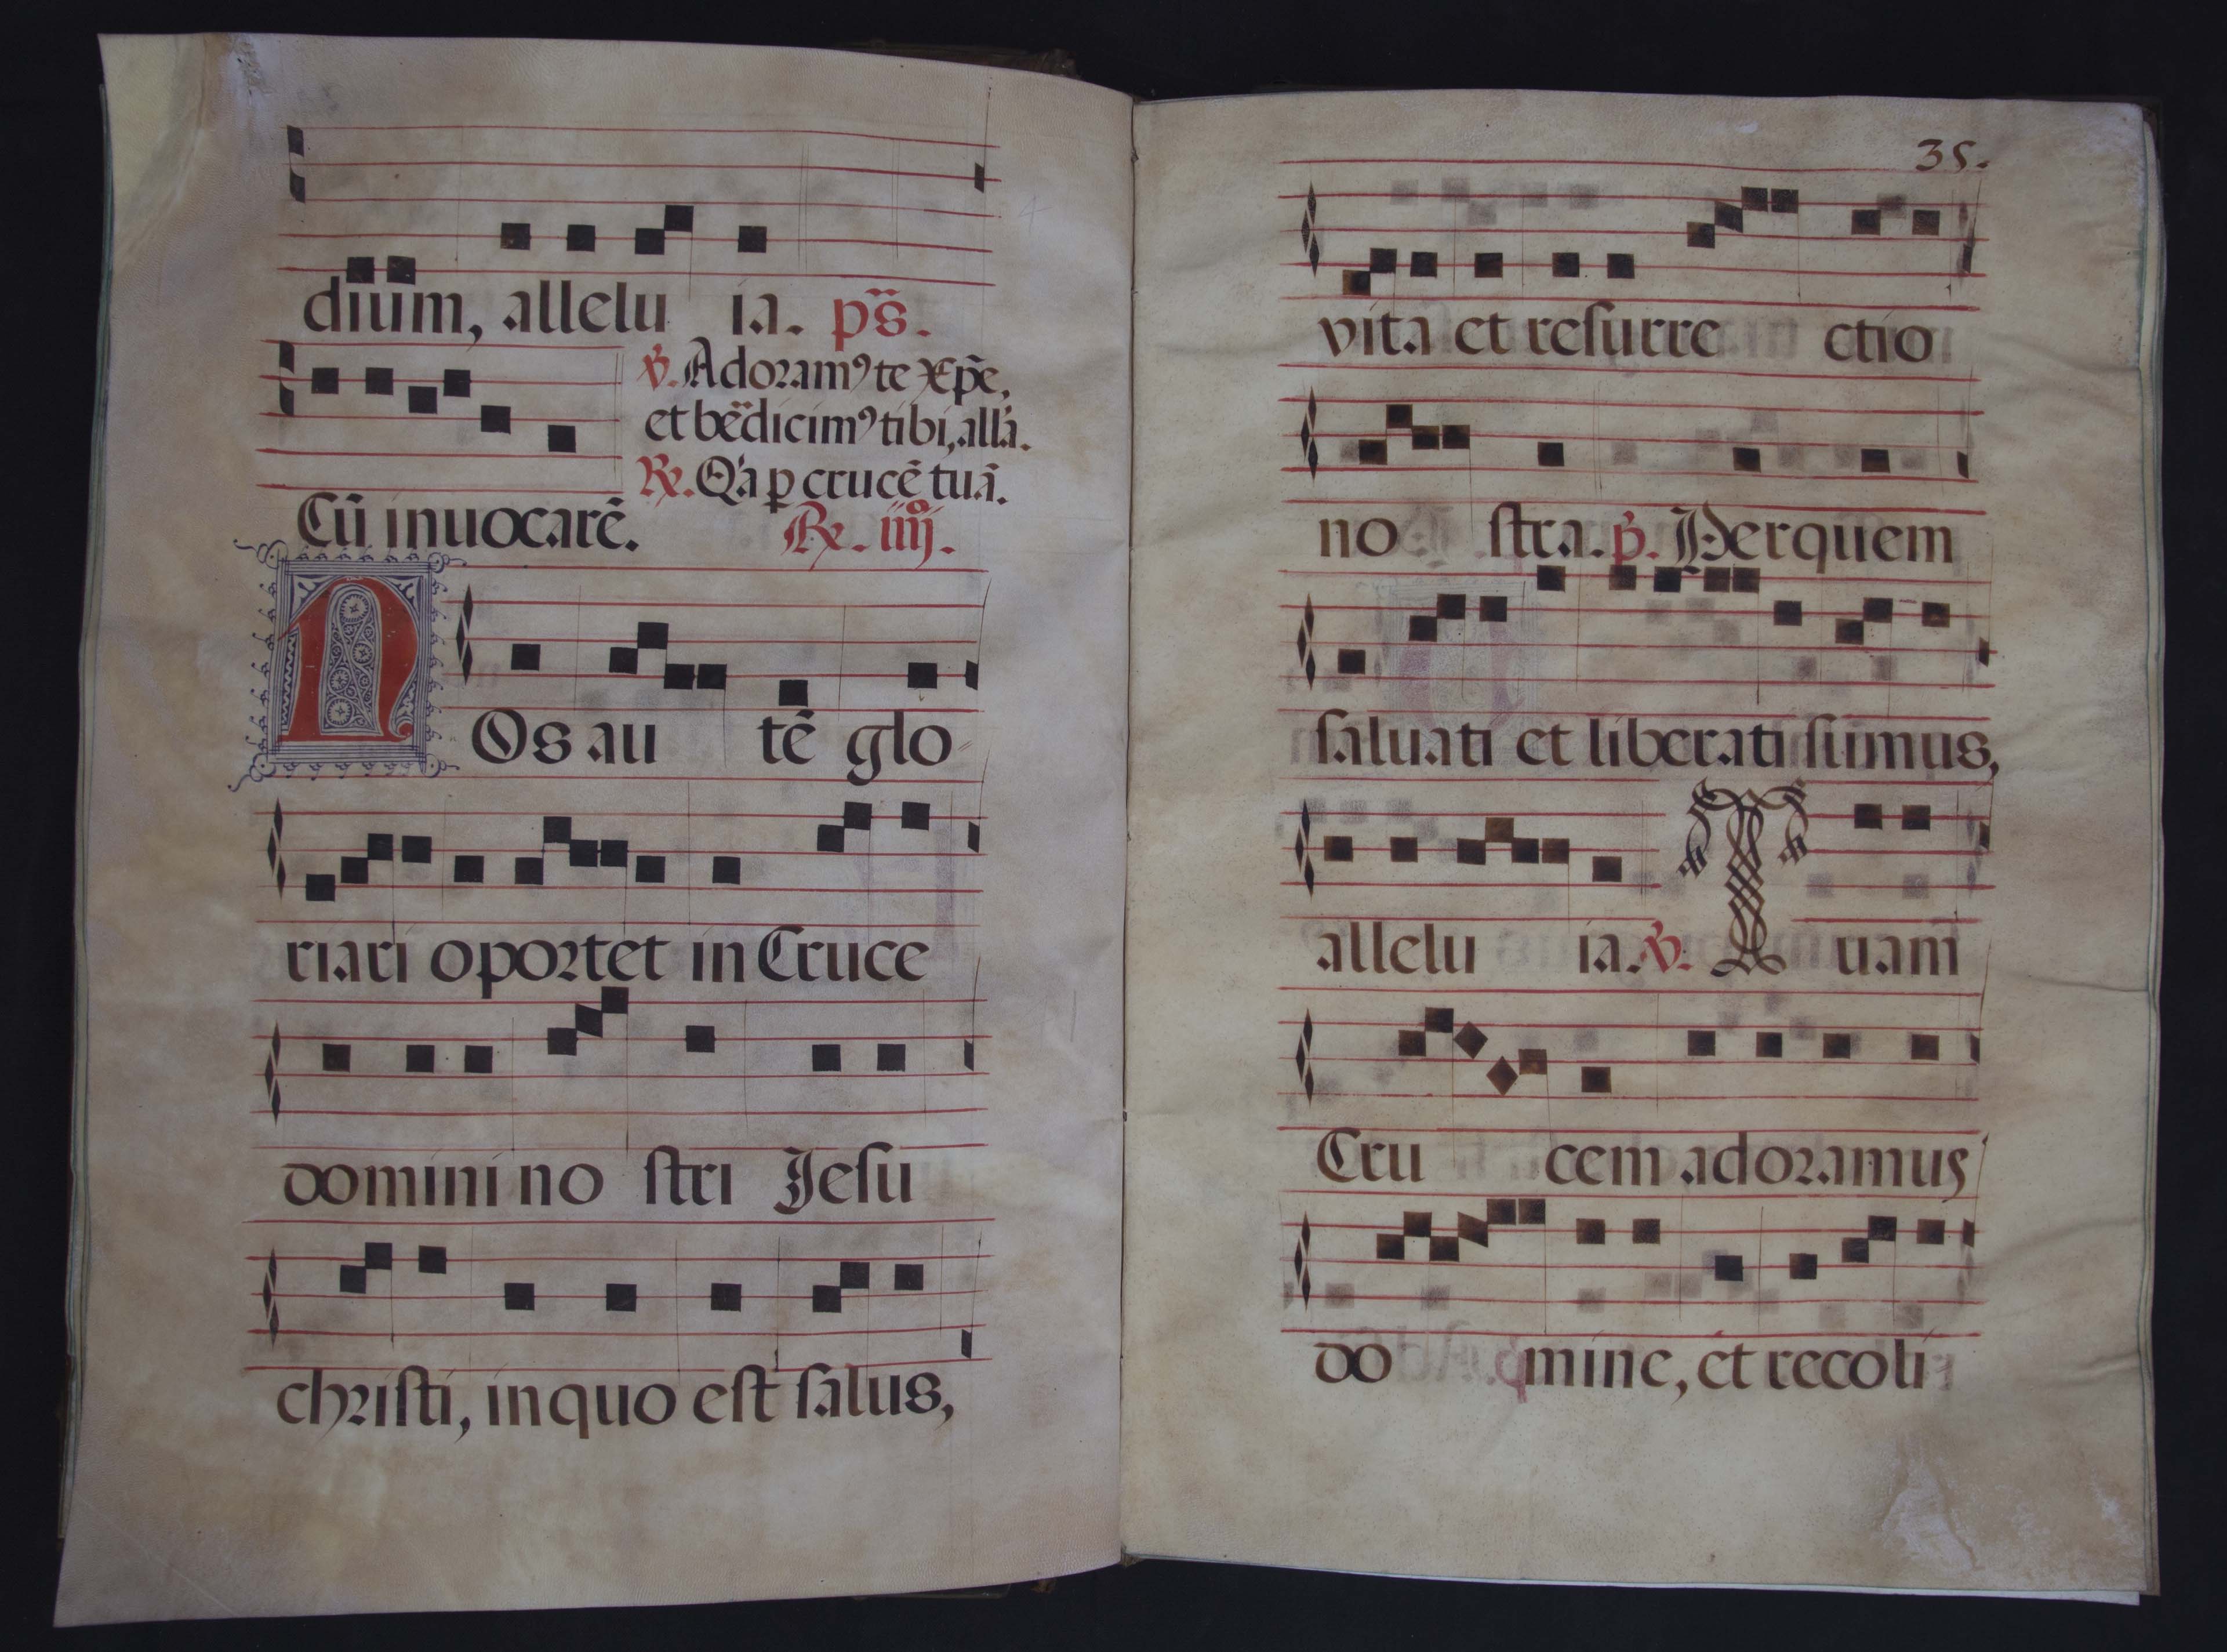 dium, allelu ia. ps̈.
℣. Adoramꝰ te Xp̄e,
et bēdicimꝰ tibi, alla.
℞. Qa ꝑ crucē tuā.
Cū inuocarē. ℞. iiijo.
NOs au tē glo
riari oportet in Cruce
domini no ſtri Jeſu
chriſti, in quo eſt ſalus,
35.
vita et reſurre ctio
no ſtra. p̃. Per quem
ſaluati et liberati ſumus,
allelu ia. ℣. Tuam
Cru cem adoramus
do mine, et recoli